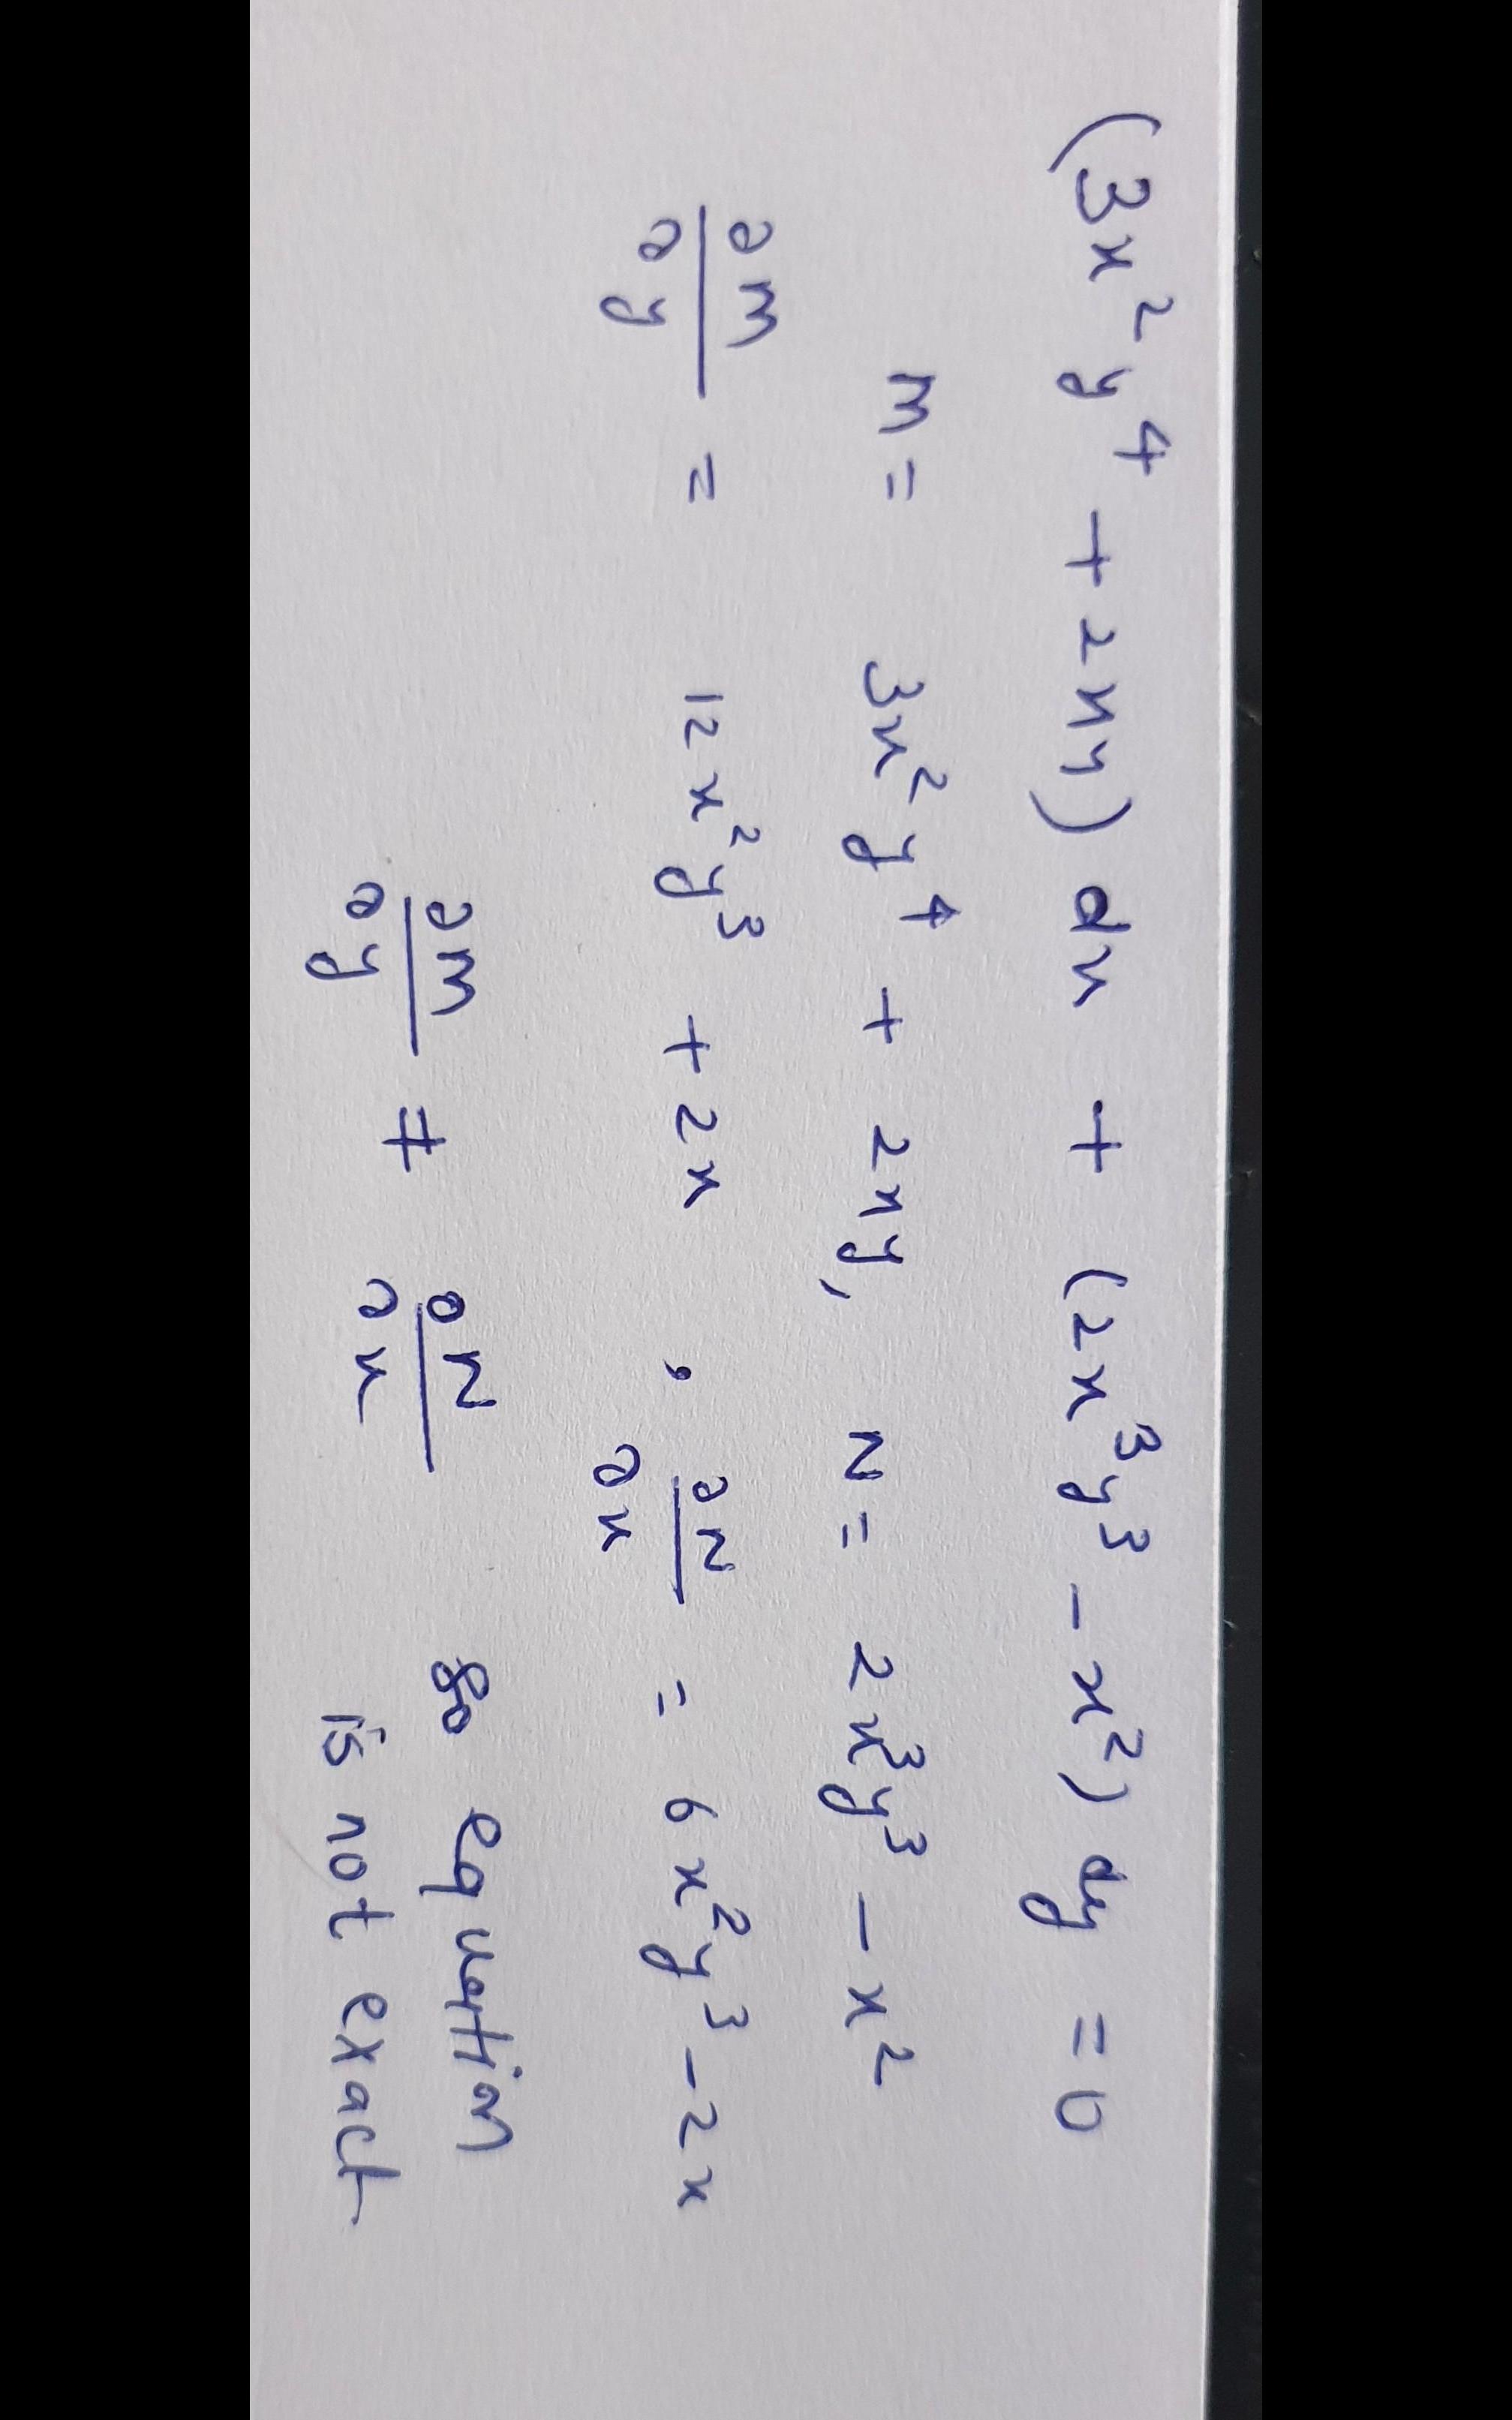 (3x²y⁴ + 2xy) dx + (2x³y³ - x²) dy = 0
M = 3x²y⁴ + 2xy, N = 2x³y³ - x²
∂M/∂y = 12x²y³ + 2x , ∂N/∂x = 6x²y³ - 2x
∂M/∂y ≠ ∂N/∂x so equation
is not exact